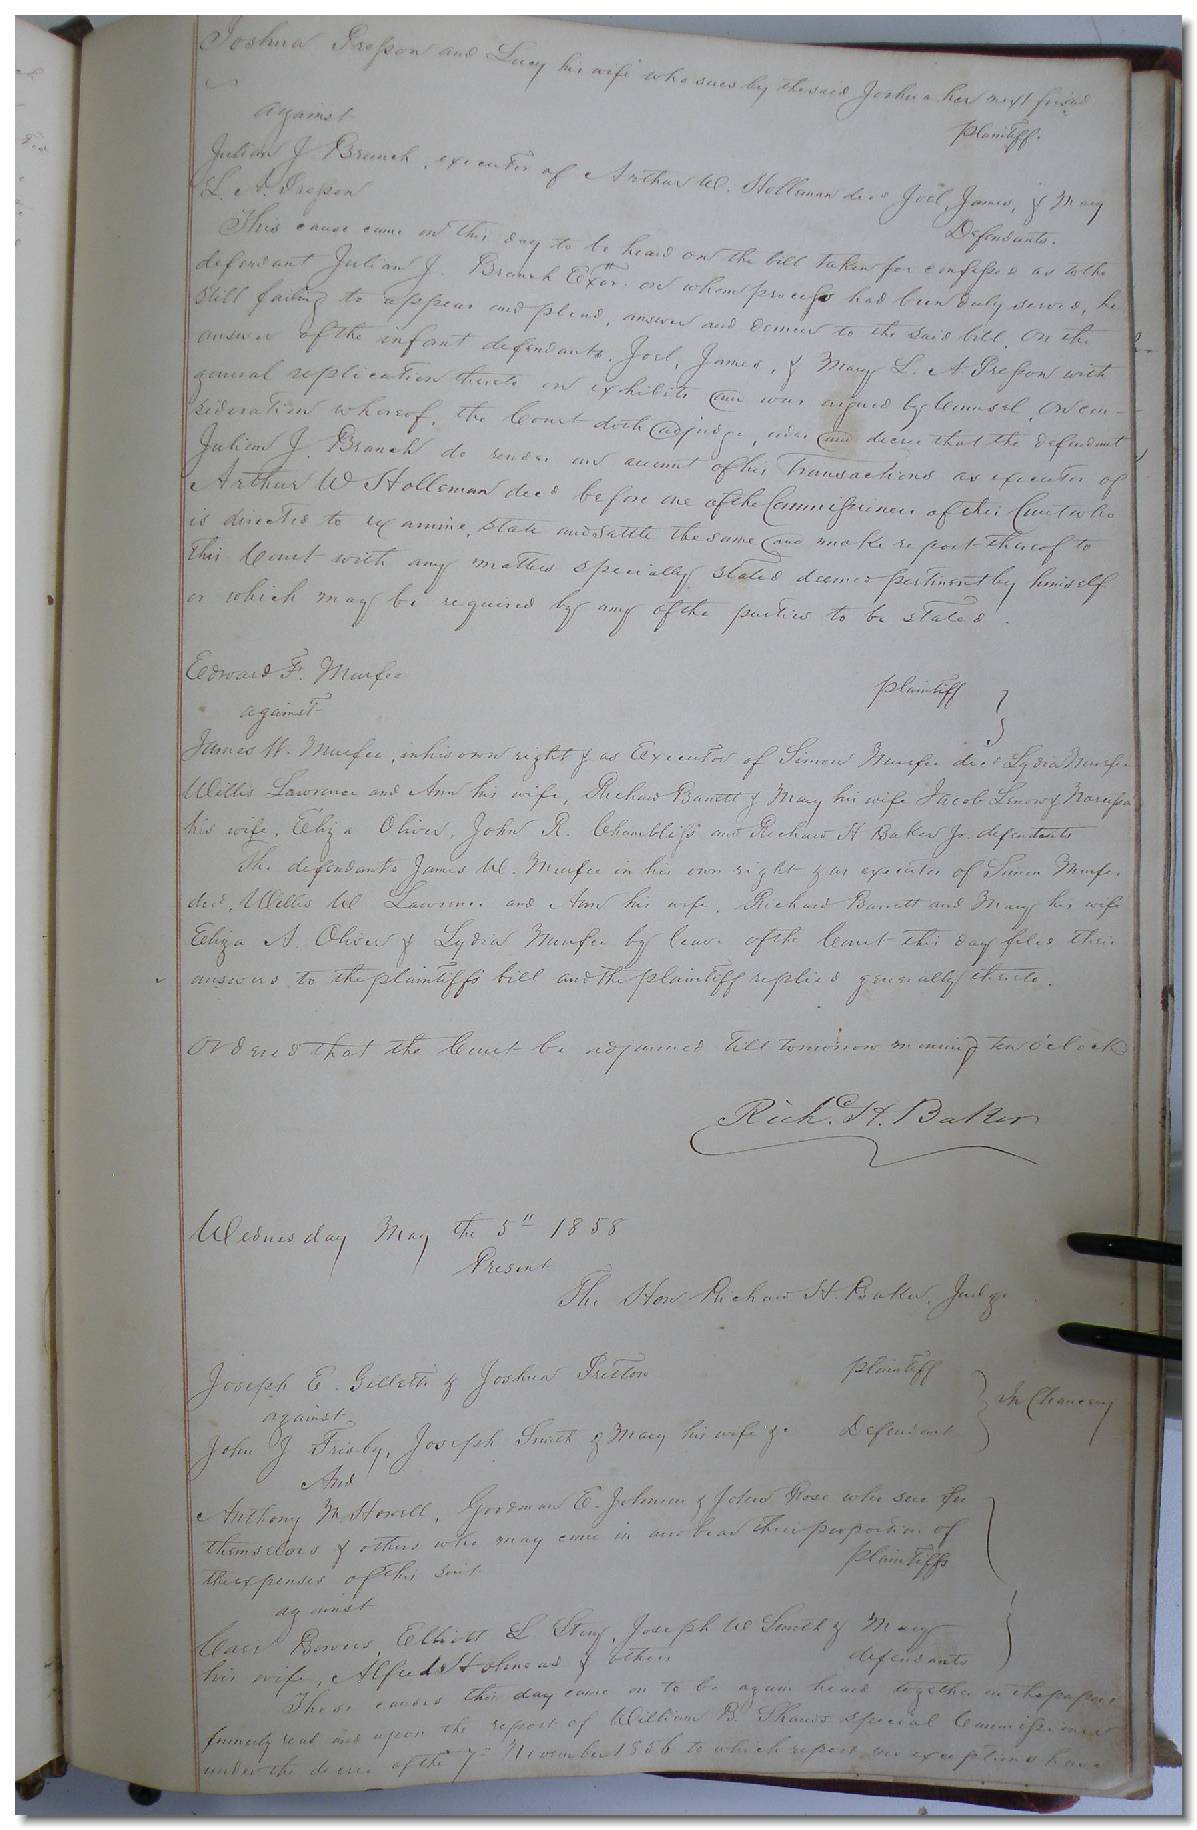 Joshua Presson and Lucy his wife who sues by the said Joshua her next friend
plaintiff.
against
Julian J. Branch, executor of Arthur W. Holleman decd Joel, James, & Mary
L. A. Presson
Defendants.
This cause came on this day to be heard on the bill taken for confessed as to the
defendant Julian J. Branch Exor. on whom process had been duly served, he
still failing to appear and plead, answer and demur to the said bill, on the
answer of the infant defendants, Joel, James, & Mary L. A Presson with
general replication thereto on exhibits and was argued by Counsel, on con-
sideration whereof, the Court doth adjudge, order and decree that the defendant
Julian J. Branch do render an account of his Transactions as executor of
Arthur W Holleman decd before one of the Commissioners of this Court who
is directed to examine, state and settle the same and make report thereof to
this Court with any matters specially stated deemed pertinent by himself
or which may be required by any of the parties to be stated.
Edward F. Murfee
plaintiff
against
James W. Murfee, in his own right & as Executor of Simon Murfee decd Lydia Murfee
Willis Lawrence and Ann his wife, Richard Barrett & Mary his wife Jacob
his wife, Eliza Oliver, John R. Chambliss and Richard H Baker Jr. defendants
The defendants James W. Murfee in his own right & as executor of Simon Murfee
decd, Willis W Lawrence and Ann his wife, Richard Barrett and Mary his wife
Eliza A. Oliver & Lydia Murfee by leave of the Court this day filed their
answers to the plaintiffs bill and the plaintiff replied generally thereto.
Ordered that the Court be adjourned till tomorrow morning ten o'clock
Richd. H. Baker
Wednesday May the 5th 1858
Present
The Hon Richard H. Baker, Judge
Joseph E. Gillette & Joshua Pretlow
plaintiff
against
In Chancery
John J Frisby, Joseph Smith & Mary his wife &c
Defendant
And
Anthony M. Howell, Goodman E. Johnson & John Rose who sue for
themselves & others who may come in and bear their proportion of
the expenses of this suit
plaintiffs
against
Carr Bowers, Elliott L. Story, Joseph W Smith & Mary
his wife, Alfred Holmead & others
defendants
These causes this day came on to be again heard together on the papers
formerly read and upon the report of William B. Shands special Commissioner
under the decree of the 7th November 1856 to which report no exceptions have